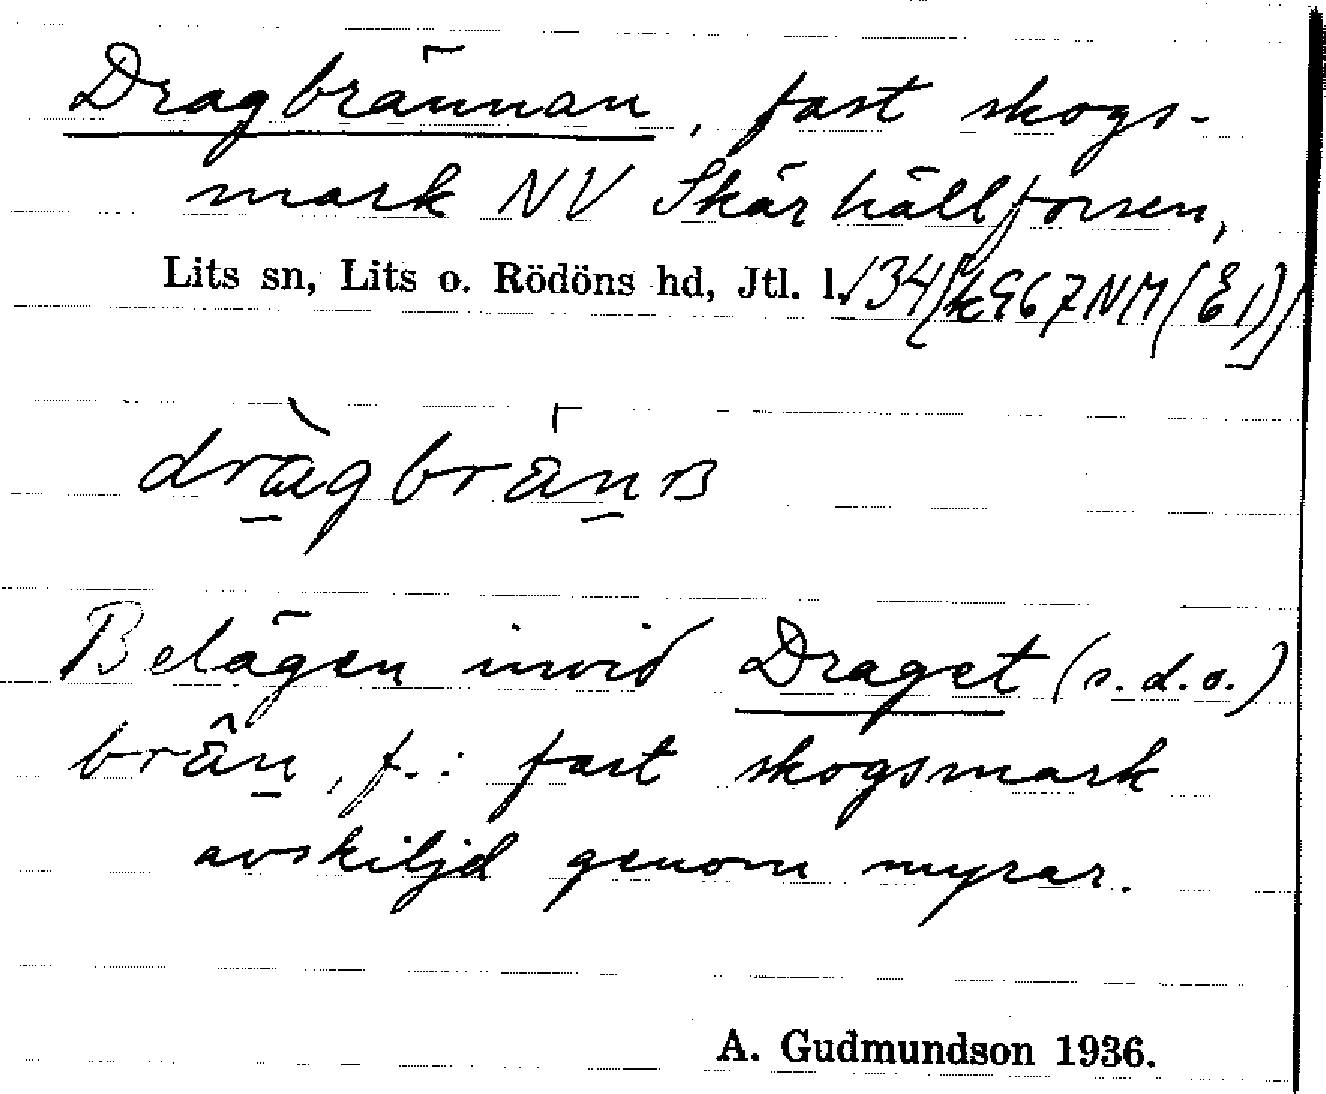 Dragbrännan, fast skogs-
mark NV Skärhällforsen,
Lits sn, Lits o. Rödöns hd, Jtl. l.
Belägen invid Draget (s.d.o.)
brän, f.: fast skogsmark
avskiljd genom myrar.
A. Gudmundson 1936.